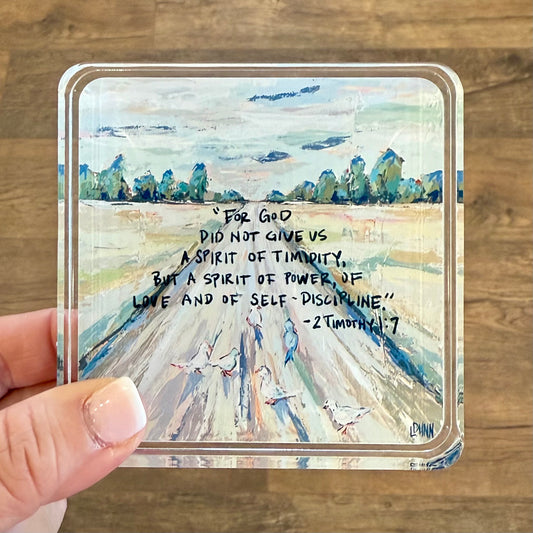 "FOR GOD
DID NOT GIVE US
A SPIRIT OF TIMIDITY,
BUT A SPIRIT OF POWER, OF
LOVE AND OF SELF-DISCIPLINE."
-2 TIMOTHY 1:7
LDUNN